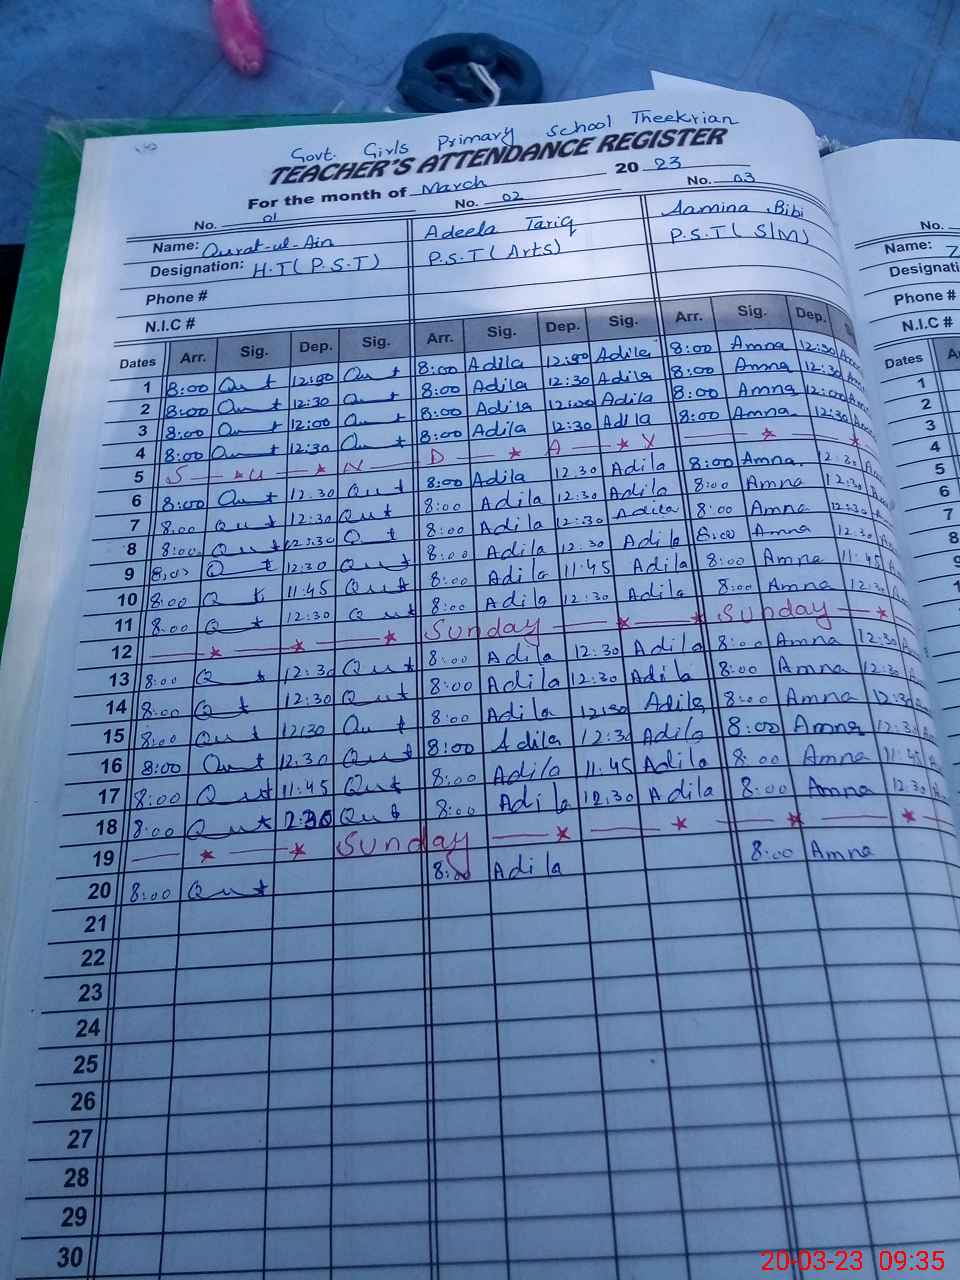 Govt. Girls Primary School Theekrian
TEACHER'S ATTENDANCE REGISTER
For the month of March 2023
No. 01 No. 02 No. 03 No.
Name: Qurat-ul-Ain Adeela Tariq Aamina Bibi Name:
Designation: H.T(P.S.T) P.S.T(Arts) P.S.T(S/M) Designati
Phone # Phone #
N.I.C # N.I.C #
Dates Arr. Sig. Dep. Sig. Arr. Sig. Dep. Sig. Arr. Sig. Dep. Dates
1 8:00 Qut Qut 8:00 Adila Adila 8:00 Amna 12:30 1
2 8:00 Qut 12:30 Qut 8:00 Adila 12:30 Adila 8:00 Amna 12:30 2
3 8:00 Qut 12:00 Qut 8:00 Adila 12:00 Adila 8:00 Amna 12:00 3
4 8:00 Qut 12:30 Qut 8:00 Adila 12:30 Adila 8:00 Amna 12:30 4
5 S U N D A Y 5
6 8:00 Qut 12:30 Qut 8:00 Adila 12:30 Adila 8:00 Amna 12:30 6
7 8:00 Qut 12:30 Qut 8:00 Adila 12:30 Adila 8:00 Amna 12:30 7
8 8:00 Qut 12:30 Qut 8:00 Adila 12:30 Adila 8:00 Amna 12:30 8
9 8:00 Qut 12:30 Qut 8:00 Adila 12:30 Adila 8:00 Amna 12:30
10 8:00 Qut 11:45 Qut 8:00 Adila 11:45 Adila 8:00 Amna 11:45
11 8:00 Qut 12:30 Qut 8:00 Adila 12:30 Adila 8:00 Amna 12:30
12 Sunday Sunday
13 8:00 Qut 12:30 Qut 8:00 Adila 12:30 Adila 8:00 Amna 12:30
14 8:00 Qut 12:30 Qut 8:00 Adila 12:30 Adila 8:00 Amna 12:30
15 8:00 Qut 12:30 Qut 8:00 Adila 12:30 Adila 8:00 Amna 12:30
16 8:00 Qut 12:30 Qut 8:00 Adila 12:30 Adila 8:00 Amna 12:30
17 8:00 Qut 11:45 Qut 8:00 Adila 11:45 Adila 8:00 Amna 11:45
18 8:00 Qut 12:30 Qut 8:00 Adila 12:30 Adila 8:00 Amna 12:30
19 Sunday
20 8:00 Qut 8:00 Adila 8:00 Amna
21
22
23
24
25
26
27
28
29
30
20-03-23 09:35